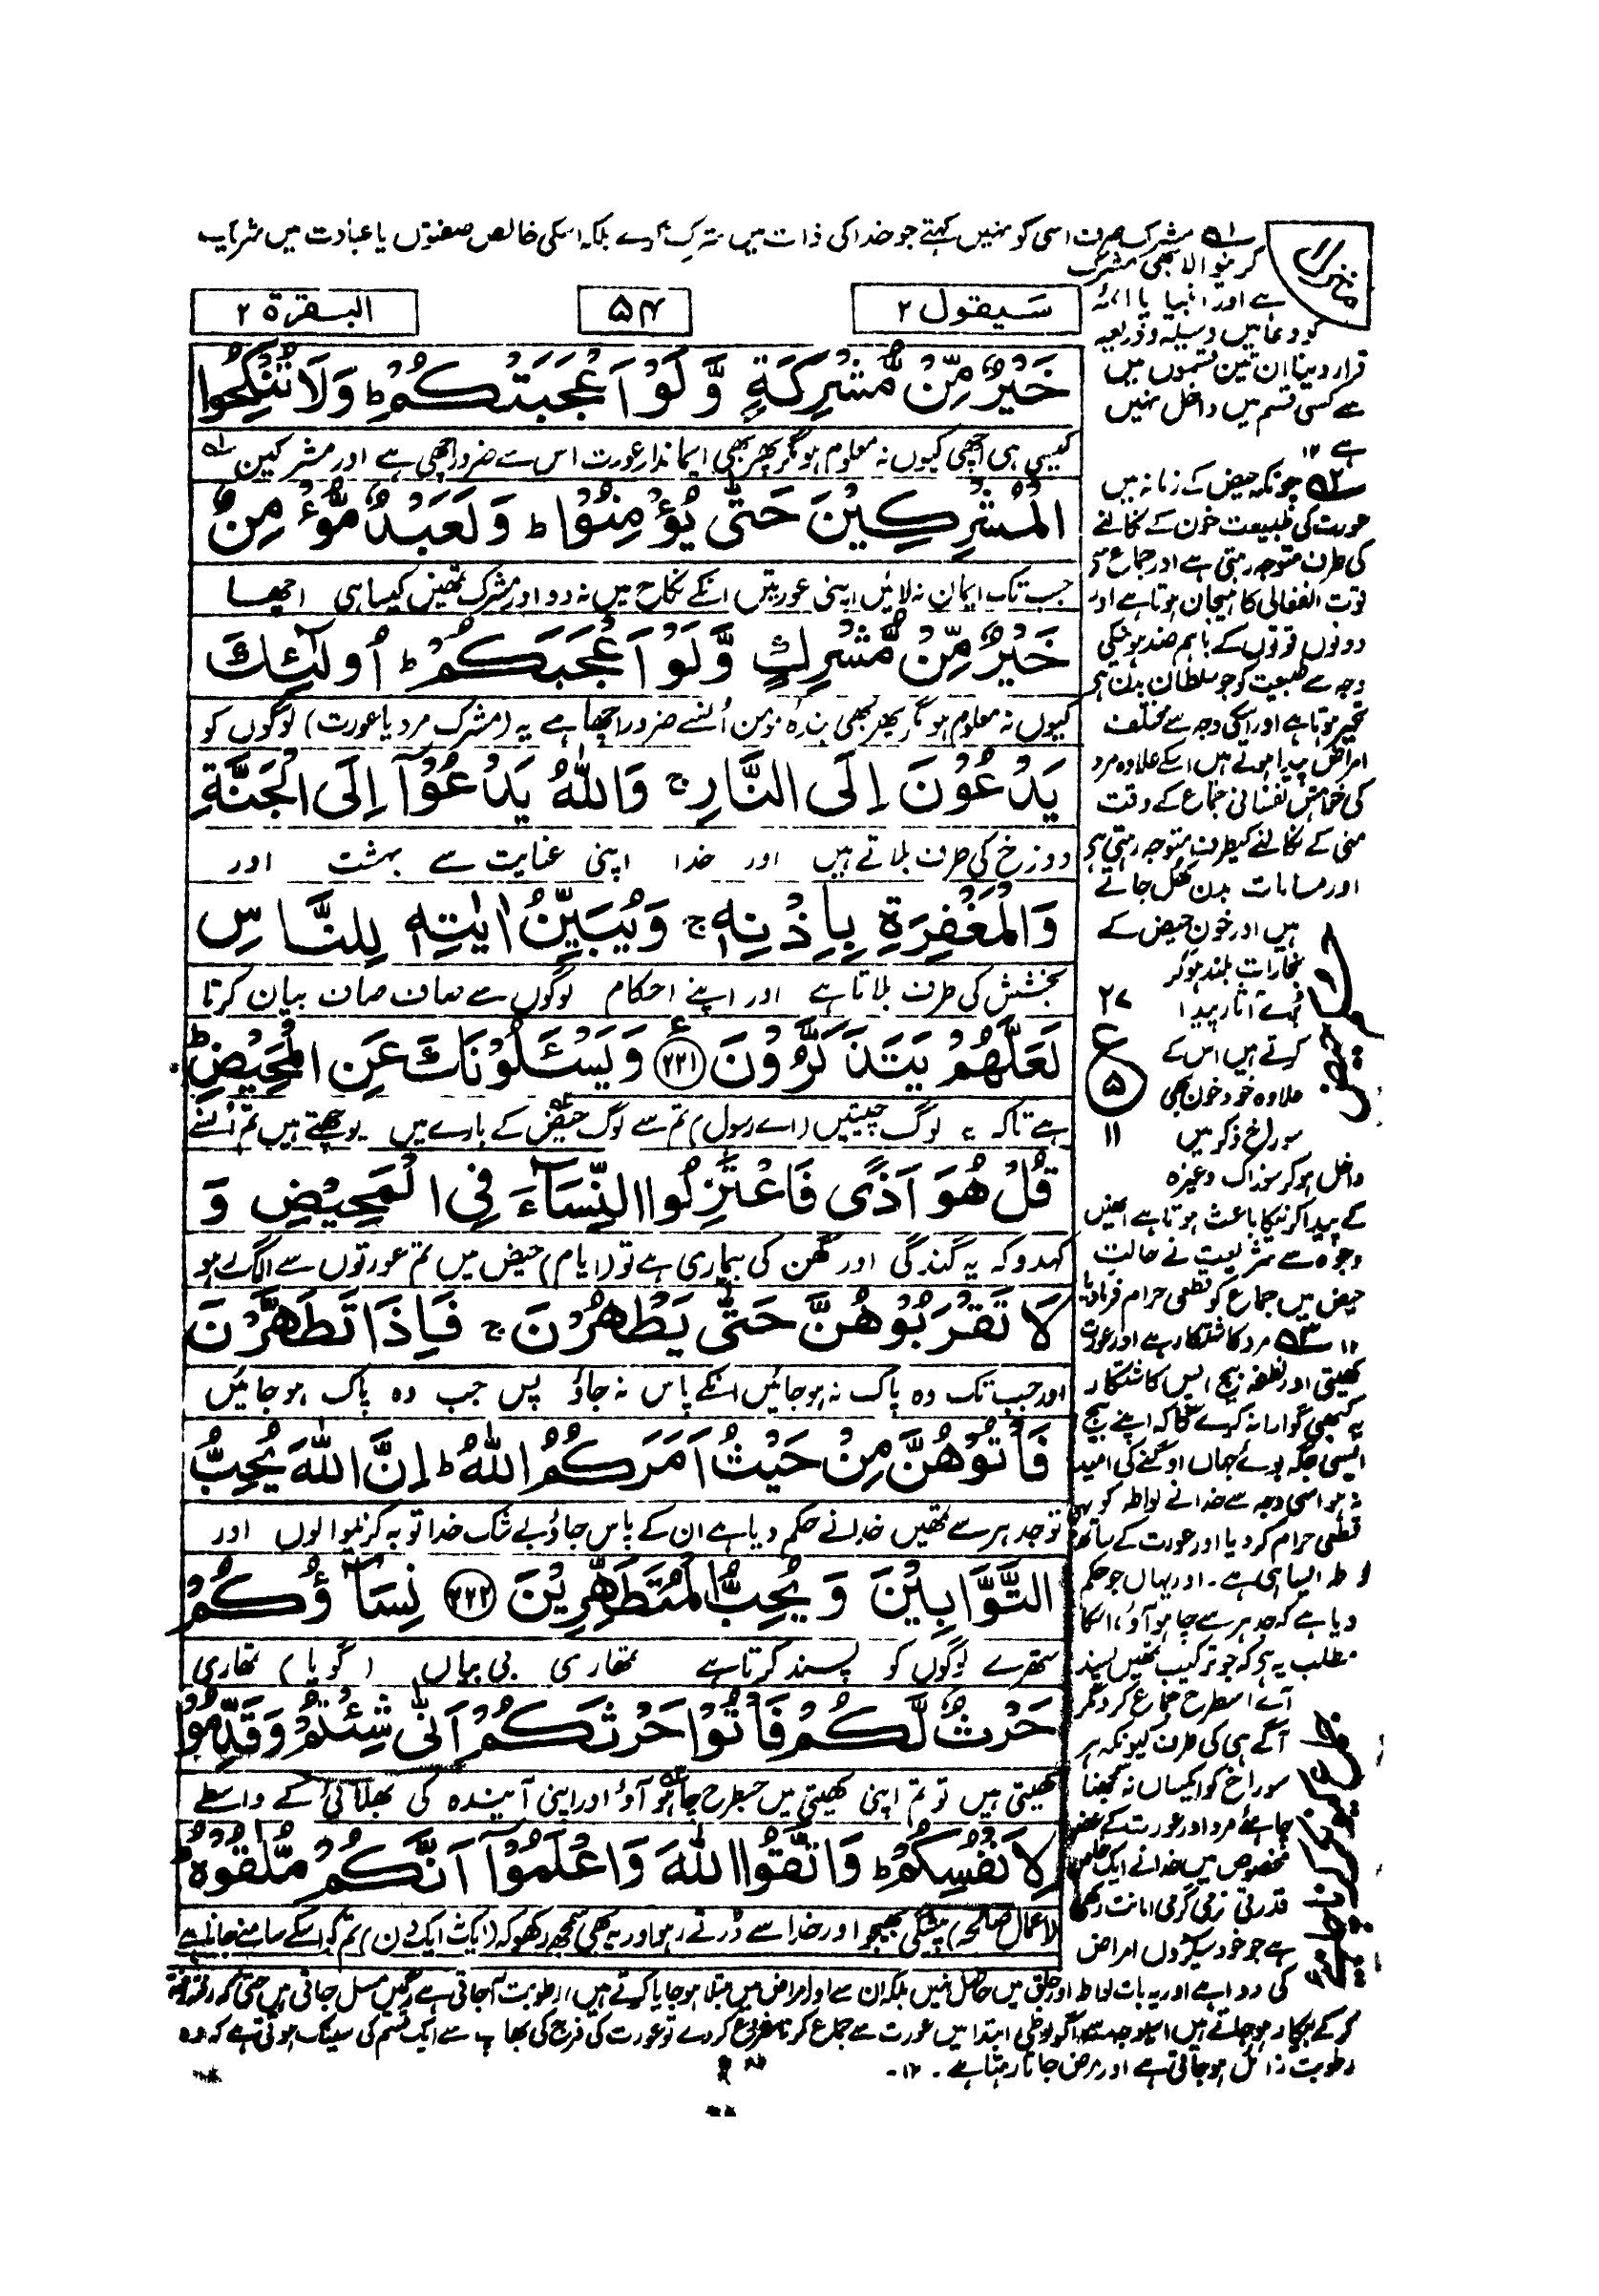 ۱؎ مشرک صرف اسی کو نہیں کہتے جو خدا کی ذات میں شرک کرے بلکہ اسکی خالص صفتوں یا عبادت میں شریک
کرنیوالا بھی مشرک
ہے اور انبیا یا ائمہ
کو دعا میں وسیلہ و ذریعہ
قرار دینا ان تین قسموں میں
سے کسی قسم میں داخل نہیں
ہے ۱۲
سیقول ۲
۵۴
البقرة ۲
خَيْرٌ مِّنْ مُّشْرِكَةٍ وَّلَوْ اَعْجَبَتْكُمْ ط وَلَا تُنْكِحُوا
کیسی ہی اچھی کیوں نہ معلوم ہو مگر پھر بھی ایماندار عورت اس سے ضرور اچھی ہے اور مشرکین ۱؎
الْمُشْرِكِيْنَ حَتّٰى يُؤْمِنُوْا ط وَلَعَبْدٌ مُّؤْمِنٌ
جب تک ایمان نہ لائیں اپنی عورتیں انکے نکاح میں نہ دو اور مشرک تمھیں کیسا ہی اچھا
خَيْرٌ مِّنْ مُّشْرِكٍ وَّلَوْ اَعْجَبَكُمْ ط اُولٰٓئِكَ
کیوں نہ معلوم ہو مگر پھر بھی بندۂ مومن اُنسے ضرور اچھا ہے یہ (مشرک مرد یا عورت) لوگوں کو
يَدْعُوْنَ اِلَى النَّارِ ج وَاللّٰهُ يَدْعُوْٓا اِلَى الْجَنَّةِ
دوزخ کی طرف بلاتے ہیں اور خدا اپنی عنایت سے بہشت اور
وَالْمَغْفِرَةِ بِاِذْنِهٖ ج وَيُبَيِّنُ اٰيٰتِهٖ لِلنَّاسِ
بخشش کی طرف بلاتا ہے اور اپنے احکام لوگوں سے صاف صاف بیان کرتا
لَعَلَّهُمْ يَتَذَكَّرُوْنَ ﴿۲۲۱﴾ ع وَيَسْـَٔلُوْنَكَ عَنِ الْمَحِيْضِ ط
ہے تاکہ یہ لوگ چیتیں (اے رسول) تم سے لوگ حیض ۲؎ کے بارے میں پوچھتے ہیں تم اُنسے
قُلْ هُوَ اَذًى فَاعْتَزِلُوا النِّسَآءَ فِى الْمَحِيْضِ وَ
کہدو کہ یہ گندگی اور گھن کی بیماری ہے تو (ایام) حیض میں تم عورتوں سے الگ رہو
لَا تَقْرَبُوْهُنَّ حَتّٰى يَطْهُرْنَ ج فَاِذَا تَطَهَّرْنَ
اور جب تک وہ پاک نہ ہو جائیں انکے پاس نہ جاؤ پس جب وہ پاک ہو جائیں
فَاْتُوْهُنَّ مِنْ حَيْثُ اَمَرَكُمُ اللّٰهُ ط اِنَّ اللّٰهَ يُحِبُّ
تو جدہر سے تمھیں خدا نے حکم دیا ہے ان کے پاس جاؤ بے شک خدا توبہ کرنیوالوں اور
التَّوَّابِيْنَ وَيُحِبُّ الْمُتَطَهِّرِيْنَ ﴿۲۲۲﴾ نِسَآؤُكُمْ
ستھرے لوگوں کو پسند کرتا ہے تمھاری بی بیاں (گویا) تمھاری
حَرْثٌ لَّكُمْ فَاْتُوْا حَرْثَكُمْ اَنّٰى شِئْتُمْ وَقَدِّمُوْا
کھیتی ہیں تو تم اپنی کھیتی میں جسطرح چاہو ۳؎ آؤ اور اپنی آیندہ کی بھلائی کے واسطے
لِاَنْفُسِكُمْ ط وَاتَّقُوا اللّٰهَ وَاعْلَمُوْٓا اَنَّكُمْ مُّلٰقُوْهُ ط
(اعمال صالحہ) پیشگی بھیجو اور خدا سے ڈرتے رہو اور یہ بھی سمجھ رکھو کہ (ایک نہ ایک دن) تم کو اسکے سامنے جانا ہے
۲؎ چونکہ حیض کے زمانہ میں
عورت کی طبیعت خون کے نکالنے
کی طرف متوجہ رہتی ہے اور جماع سے
قوت انفعالی کا ہیجان ہوتا ہے اور
دونوں قوتوں کے باہم ضد ہونیکی
وجہ سے طبیعت کو جو سلطان بدن ہے
تحیر ہوتا ہے اور اسکی وجہ سے مختلف
امراض پیدا ہوتے ہیں اسکے علاوہ مرد
کی خواہش نفسانی جماع کے وقت
منی کے نکالنے کیطرف متوجہ رہتی ہے
اور مسامات بدن کھل جاتے
ہیں اور خون حیض کے
بخارات بلند ہو کر
بُرے آثار پیدا
کرتے ہیں اس کے
علاوہ خود خون بھی
سوراخ ذکر میں
داخل ہو کر سوزاک وغیرہ
کے پیدا کرنیکا باعث ہوتا ہے انھیں
وجوہ سے شریعت نے حالت
حیض میں جماع کو قطعی حرام فرمادیا
۱۲ ۳؎ مرد کاشتکار ہے اور عورت
کھیتی اور نطفہ بیج پس کاشتکار
یہ کبھی گوارا نہ کرے گا کہ اپنے بیج
ایسی جگہ بوئے جہاں اوگنے کی امید
نہ ہو اسی وجہ سے خدا نے لواطہ کو بھی
قطعی حرام کر دیا اور عورت کے ساتھ
لواطہ ایسا ہی ہے۔ اور یہاں جو حکم
دیا ہے کہ جدہر سے چاہو آؤ، اسکا
مطلب یہ ہے کہ جو ترکیب تمھیں پسند
آئے اسطرح جماع کرو مگر
آگے ہی کی طرف کیونکہ ہر
سوراخ کو یکساں نہ سمجھنا
چاہئے مرد اور عورت کے عضو
مخصوص میں خدا نے ایک خاص
قدرتی نرمی گرمی امانت رکھی
ہے جو خود سیکڑوں امراض
کی دوا ہے اور یہ بات لواط اور جلق میں حاصل نہیں بلکہ ان سے اور امراض میں مبتلا ہو جایا کرتے ہیں، رطوبت آجاتی ہے رگیں مسل جاتی ہیں حتی کہ رفتہ رفتہ
کر کے بیکار ہو جاتے ہیں اسیوجہ سے اگر لوطی ابتدا میں عورت سے جماع کرنا شروع کردے تو عورت کی فرج کی بھاپ سے ایک قسم کی سینک ہوتی ہے کہ وہ
رطوبت زائل ہو جاتی ہے اور مرض جاتا رہتا ہے۔ ۱۲۔
۲۷
ع
۵
۱۱